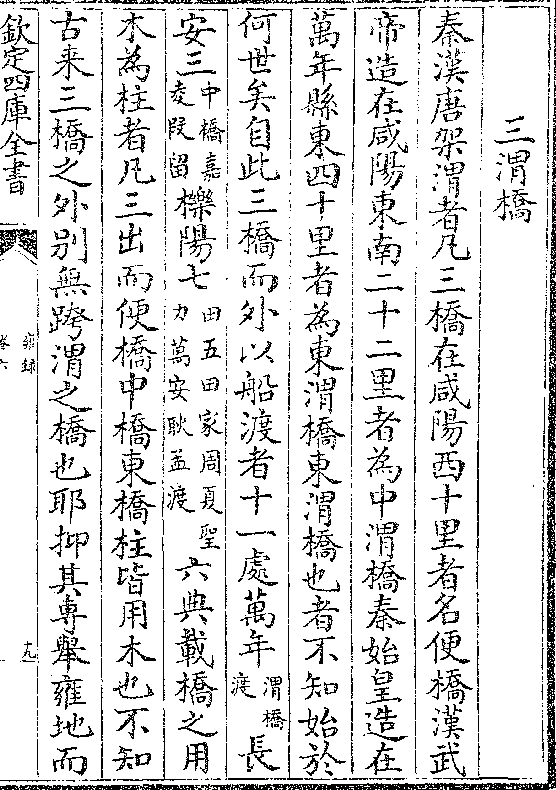 三渭橋
秦漢唐架渭者凡三橋在咸陽西十里者名便橋漢武
帝造在咸陽東南二十二里者為中渭橋秦始皇造在
萬年縣東四十里者為東渭橋東渭橋也者不知始於
何世矣自此三橋而外以船渡者十一處萬年渭橋渡長
安三中橋嘉麦叚留櫟陽七田五田家周夏聖力萬安耿孟渡六典載橋之用
木為柱者凡三出而便橋中橋東橋柱皆用木也不知
古来三橋之外别無跨渭之橋也耶抑其專舉雍地而
欽定四庫全書
雍録
卷六
十九